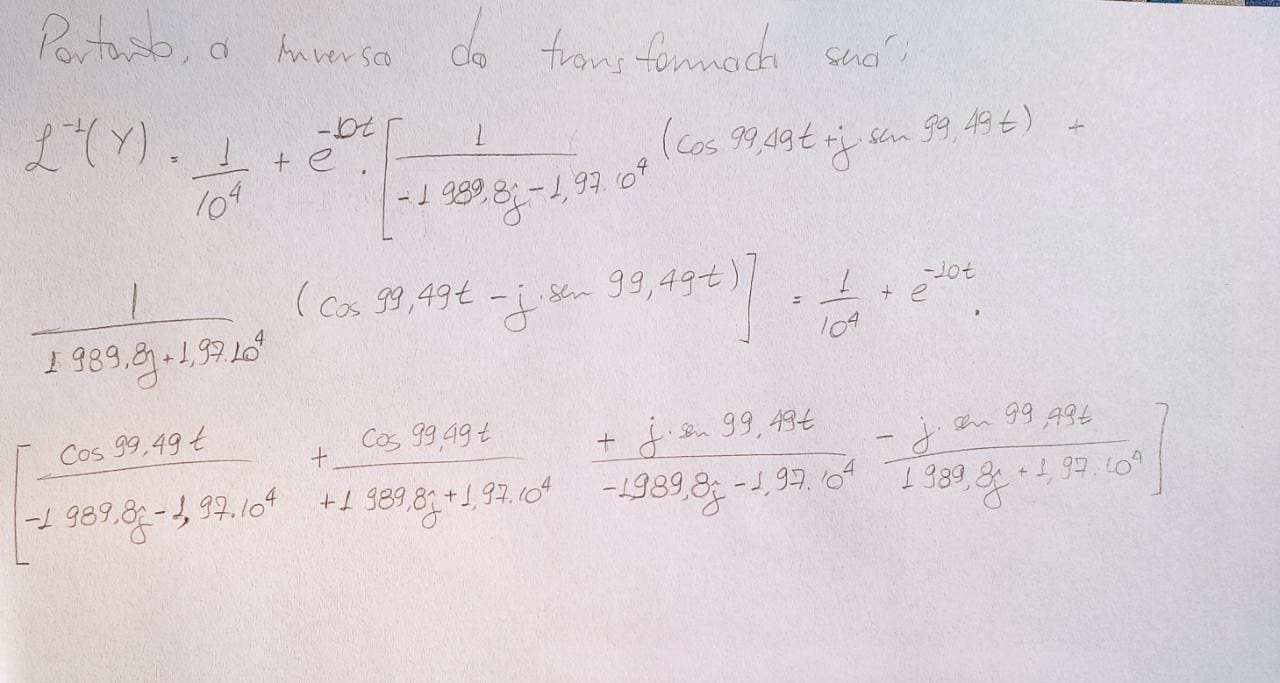 Portanto, a inversa da transformada será:
L⁻¹(Y) = 1/10⁴ + e^(-10t) . [ 1/(-1989,8j - 1,97.10⁴) (cos 99,49t + j. sen 99,49t) +
1/(1989,8j + 1,97.10⁴) (cos 99,49t - j. sen 99,49t) ] = 1/10⁴ + e^(-10t) .
[ cos 99,49t/(-1989,8j - 1,97.10⁴) + cos 99,49t/(+1989,8j + 1,97.10⁴) + j. sen 99,49t/(-1989,8j - 1,97.10⁴) - j. sen 99,49t/(1989,8j + 1,97.10⁴) ]